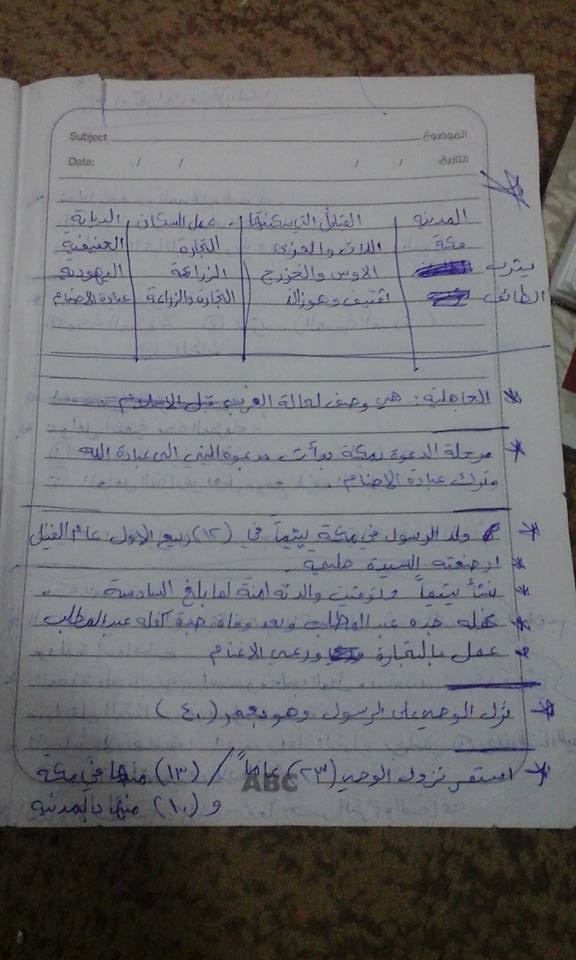 Subject الموضوع
Date: / / / / التاريخ
المدينه القبائل التي سكنتها عمل السكان الديانة
مكة اللات والعزى التجارة الحنيفية
يثرب الاوس والخزرج الزراعة اليهودية
الطائف ثقيف وهوزان التجارة والزراعة عبادة الاصنام
* الجاهلية : هي وصف لحالة العرب قبل الاسلام
* مرحلة الدعوة بمكة بدأت بدعوة النبي الى عبادة الله
وترك عبادة الاصنام .
* ولد الرسول في مكة يتيماً في (١٢) ربيع الاول عام الفيل
* ارضعته السيدة حليمة .
* نشأ يتيماً وتوفيت والدته امنة لما بلغ السادسة
* كفله جده عبد المطلب وبعد وفاة جدة كفله عبد المطلب
* عمل بالتجارة ورعى الاغنام
* نزل الوحي على الرسول وهو بعمر (٤٠)
* استمر نزول الوحي (٢٣) عاماً / (١٣) منها في مكة
و (١٠) منها بالمدنيه
ABC